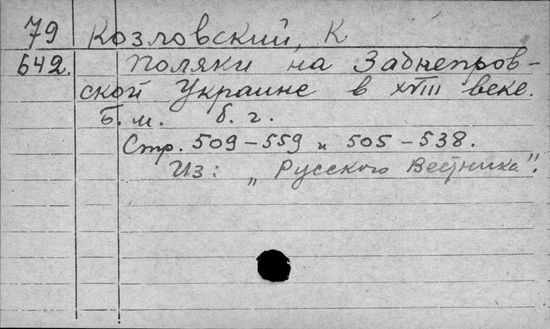 79 Козловский, К
642. Поляки на Заднепров-
ской Украине в XVIII веке.
Б. м. б. г.
Стр. 509-559 и 505-538.
Из: „Русского Вестника".